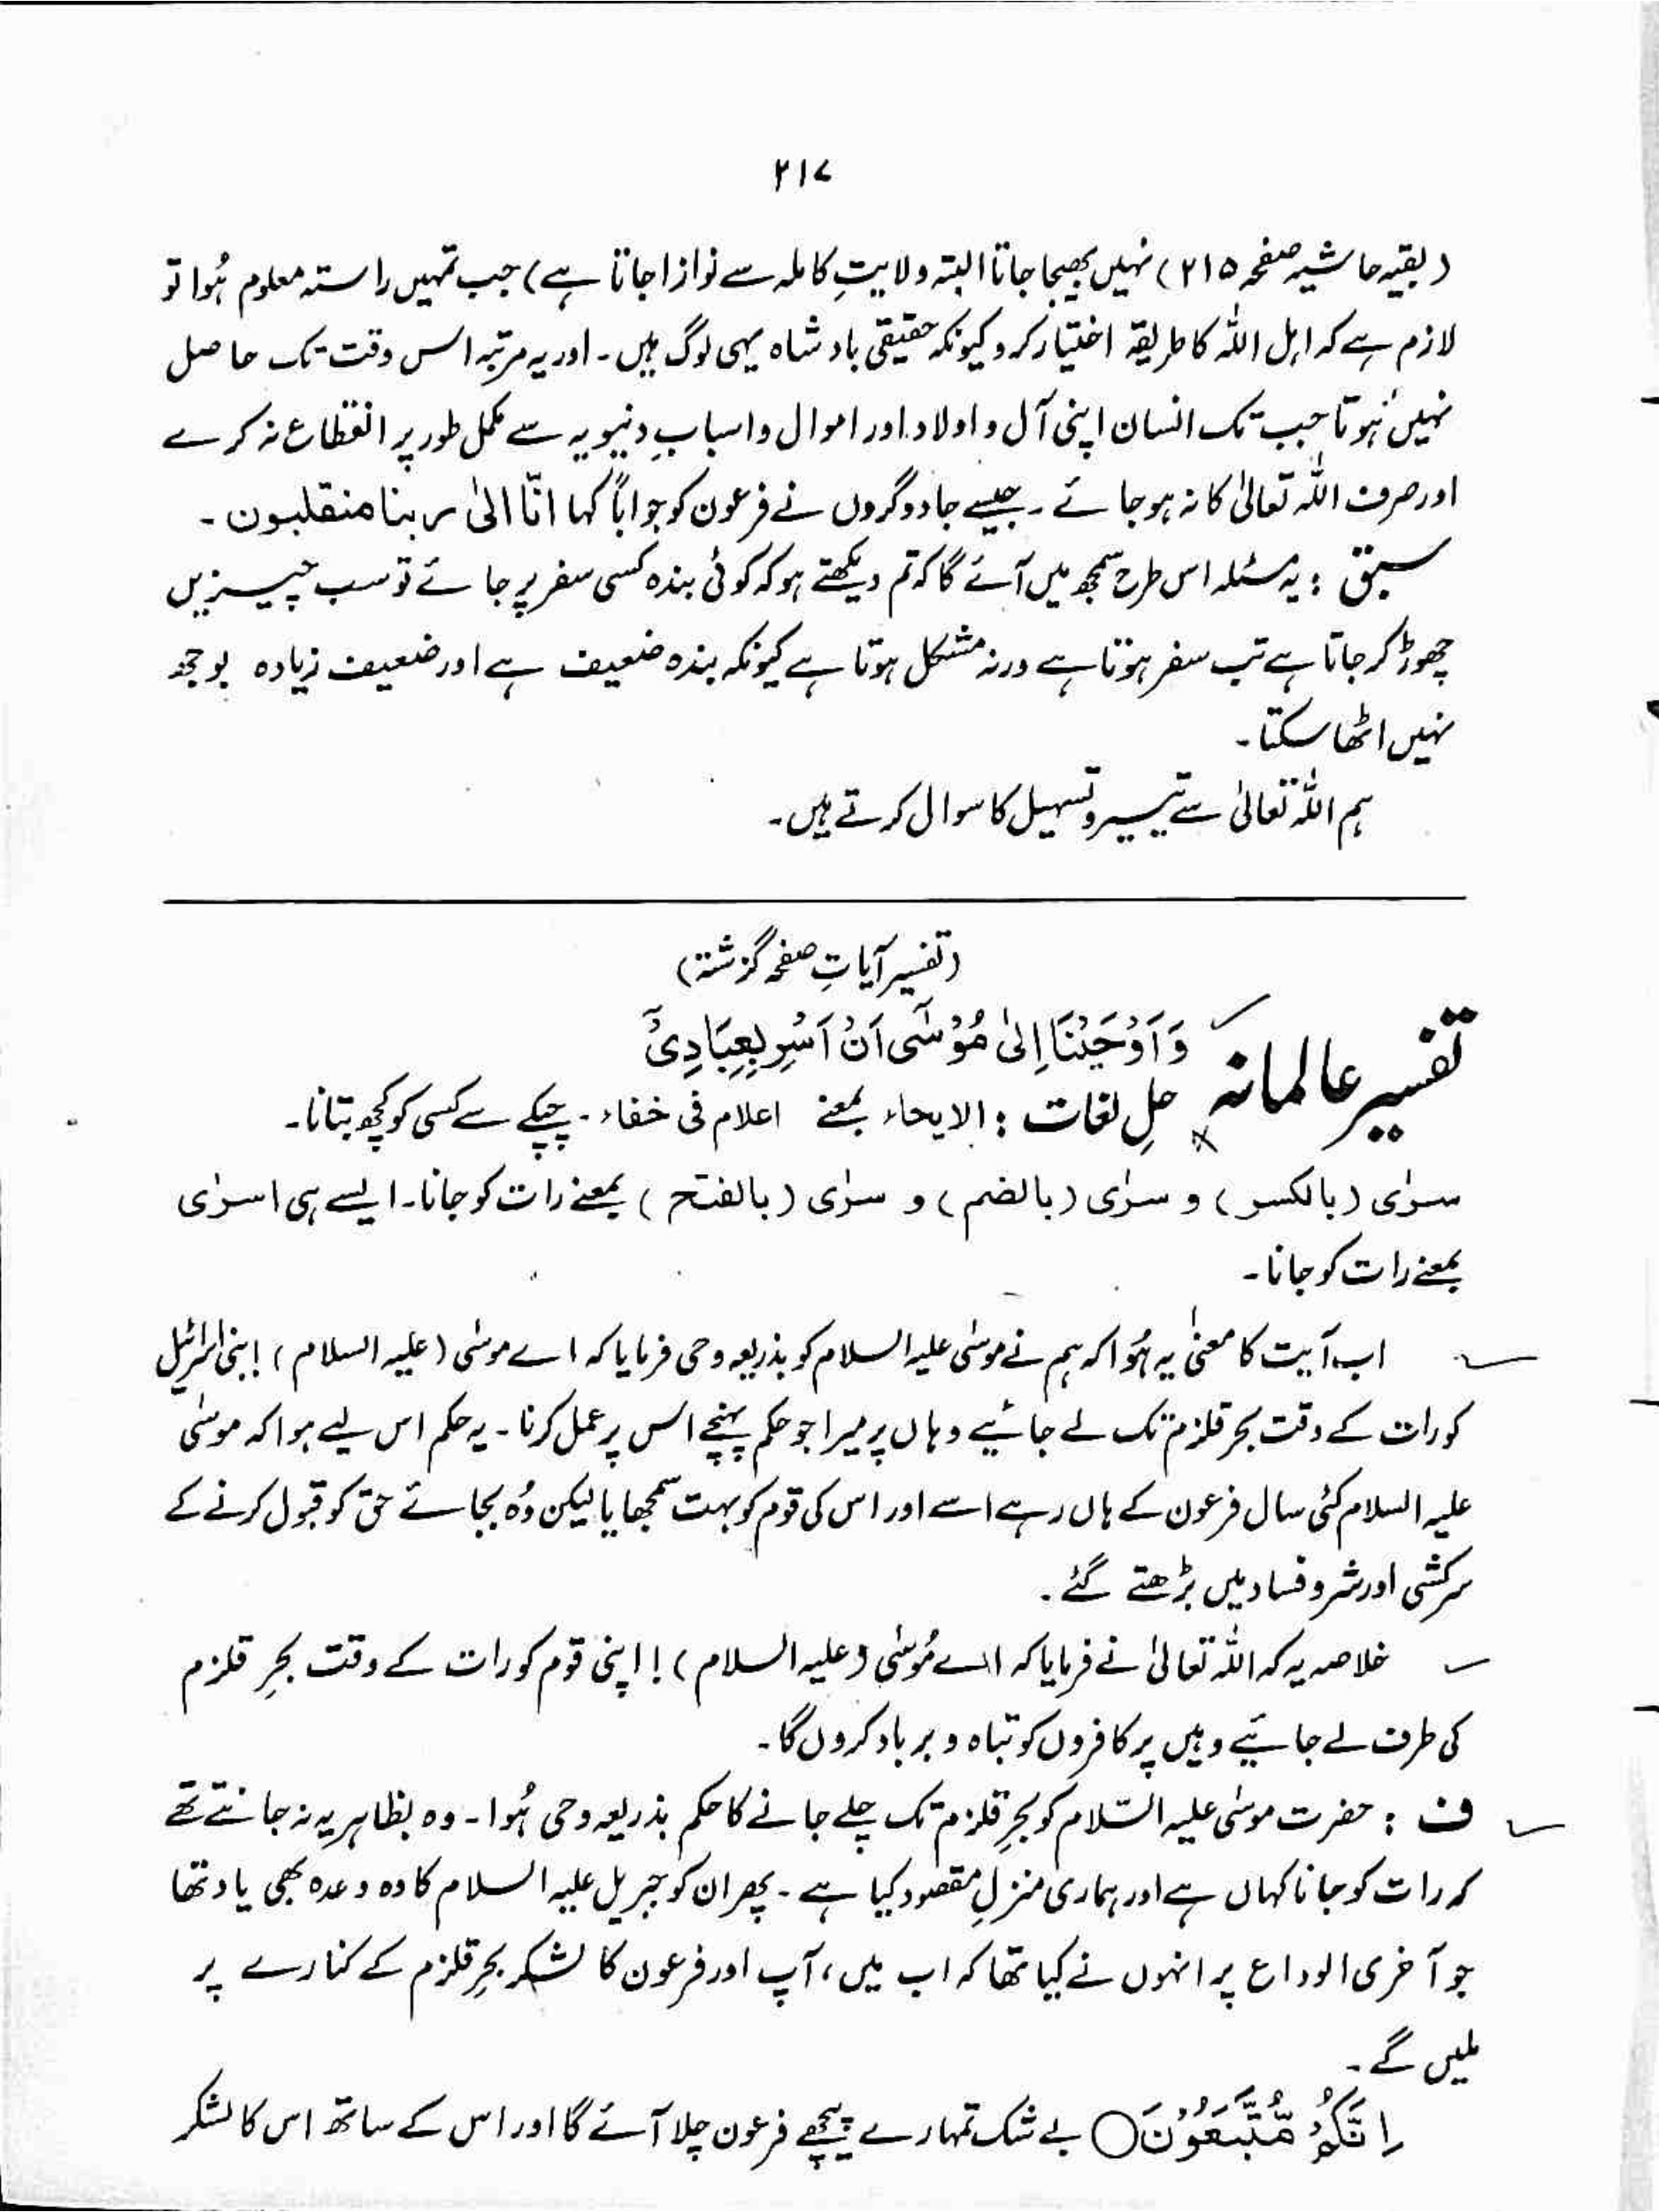 ۲۱۷
(بقیہ حاشیہ صفحہ ۲۱۵) نہیں بھیجا جاتا البتہ ولایتِ کاملہ سے نوازا جاتا ہے) جب تمہیں راستہ معلوم ہُوا تو
لازم ہے کہ اہل اللہ کا طریقہ اختیار کرو کیونکہ حقیقی بادشاہ یہی لوگ ہیں۔ اور یہ مرتبہ اس وقت تک حاصل
نہیں ہوتا جب تک انسان اپنی آل و اولاد اور اموال و اسبابِ دنیویہ سے مکمل طور پر انقطاع نہ کرے
اور صرف اللہ تعالیٰ کا نہ ہو جائے۔ جیسے جادوگروں نے فرعون کو جواباً کہا انّا الیٰ ربنا منقلبون۔
سبق : یہ مسئلہ اس طرح سمجھ میں آئے گا کہ تم دیکھتے ہو کہ کوئی بندہ کسی سفر پر جائے تو سب چیزیں
چھوڑ کر جاتا ہے تب سفر ہوتا ہے ورنہ مشکل ہوتا ہے کیونکہ بندہ ضعیف ہے اور ضعیف زیادہ بوجھ
نہیں اٹھا سکتا۔
ہم اللہ تعالیٰ سے تیسیر و تسہیل کا سوال کرتے ہیں۔
(تفسیر آیاتِ صفحہ گزشتہ)
تفسیر عالمانہ وَاَوْحَیْنَا اِلیٰ مُوْسٰٓی اَنْ اَسْرِ بِعِبَادِیْٓ
حلِ لغات : الایحاء بمعنے اعلام فی خفاء۔ چپکے سے کسی کو کچھ بتانا۔
سرٰی (بالکسر) و سرٰی (بالضم) و سرٰی (بالفتح) بمعنے رات کو جانا۔ ایسے ہی اسرٰی
بمعنے رات کو جانا۔
اب آیت کا معنیٰ یہ ہُوا کہ ہم نے موسٰی علیہ السلام کو بذریعہ وحی فرمایا کہ اے موسٰی (علیہ السلام)! بنی اسرائیل
کو رات کے وقت بحر قلزم تک لے جائیے وہاں پر میرا جو حکم پہنچے اس پر عمل کرنا۔ یہ حکم اس لیے ہوا کہ موسٰی
علیہ السلام کئی سال فرعون کے ہاں رہے اسے اور اس کی قوم کو بہت سمجھایا لیکن وُہ بجائے حق کو قبول کرنے کے
سرکشی اور شر و فساد میں بڑھتے گئے۔
خلاصہ یہ کہ اللہ تعالیٰ نے فرمایا کہ اے مُوسٰی (علیہ السلام)! اپنی قوم کو رات کے وقت بحرِ قلزم
کی طرف لے جائیے وہیں پر کافروں کو تباہ و برباد کروں گا۔
ف : حضرت موسٰی علیہ السّلام کو بحرِ قلزم تک چلے جانے کا حکم بذریعہ وحی ہُوا۔ وہ بظاہر یہ نہ جانتے تھے
کہ رات کو جانا کہاں ہے اور ہماری منزلِ مقصود کیا ہے۔ پھر ان کو جبریل علیہ السلام کا وہ وعدہ بھی یاد تھا
جو آخری الوداع پر انہوں نے کیا تھا کہ اب میں، آپ اور فرعون کا لشکر بحرِ قلزم کے کنارے پر
ملیں گے۔
اِنَّکُمْ مُّتَّبَعُوْنَ○ بے شک تمہارے پیچھے فرعون چلا آئے گا اور اس کے ساتھ اس کا لشکر